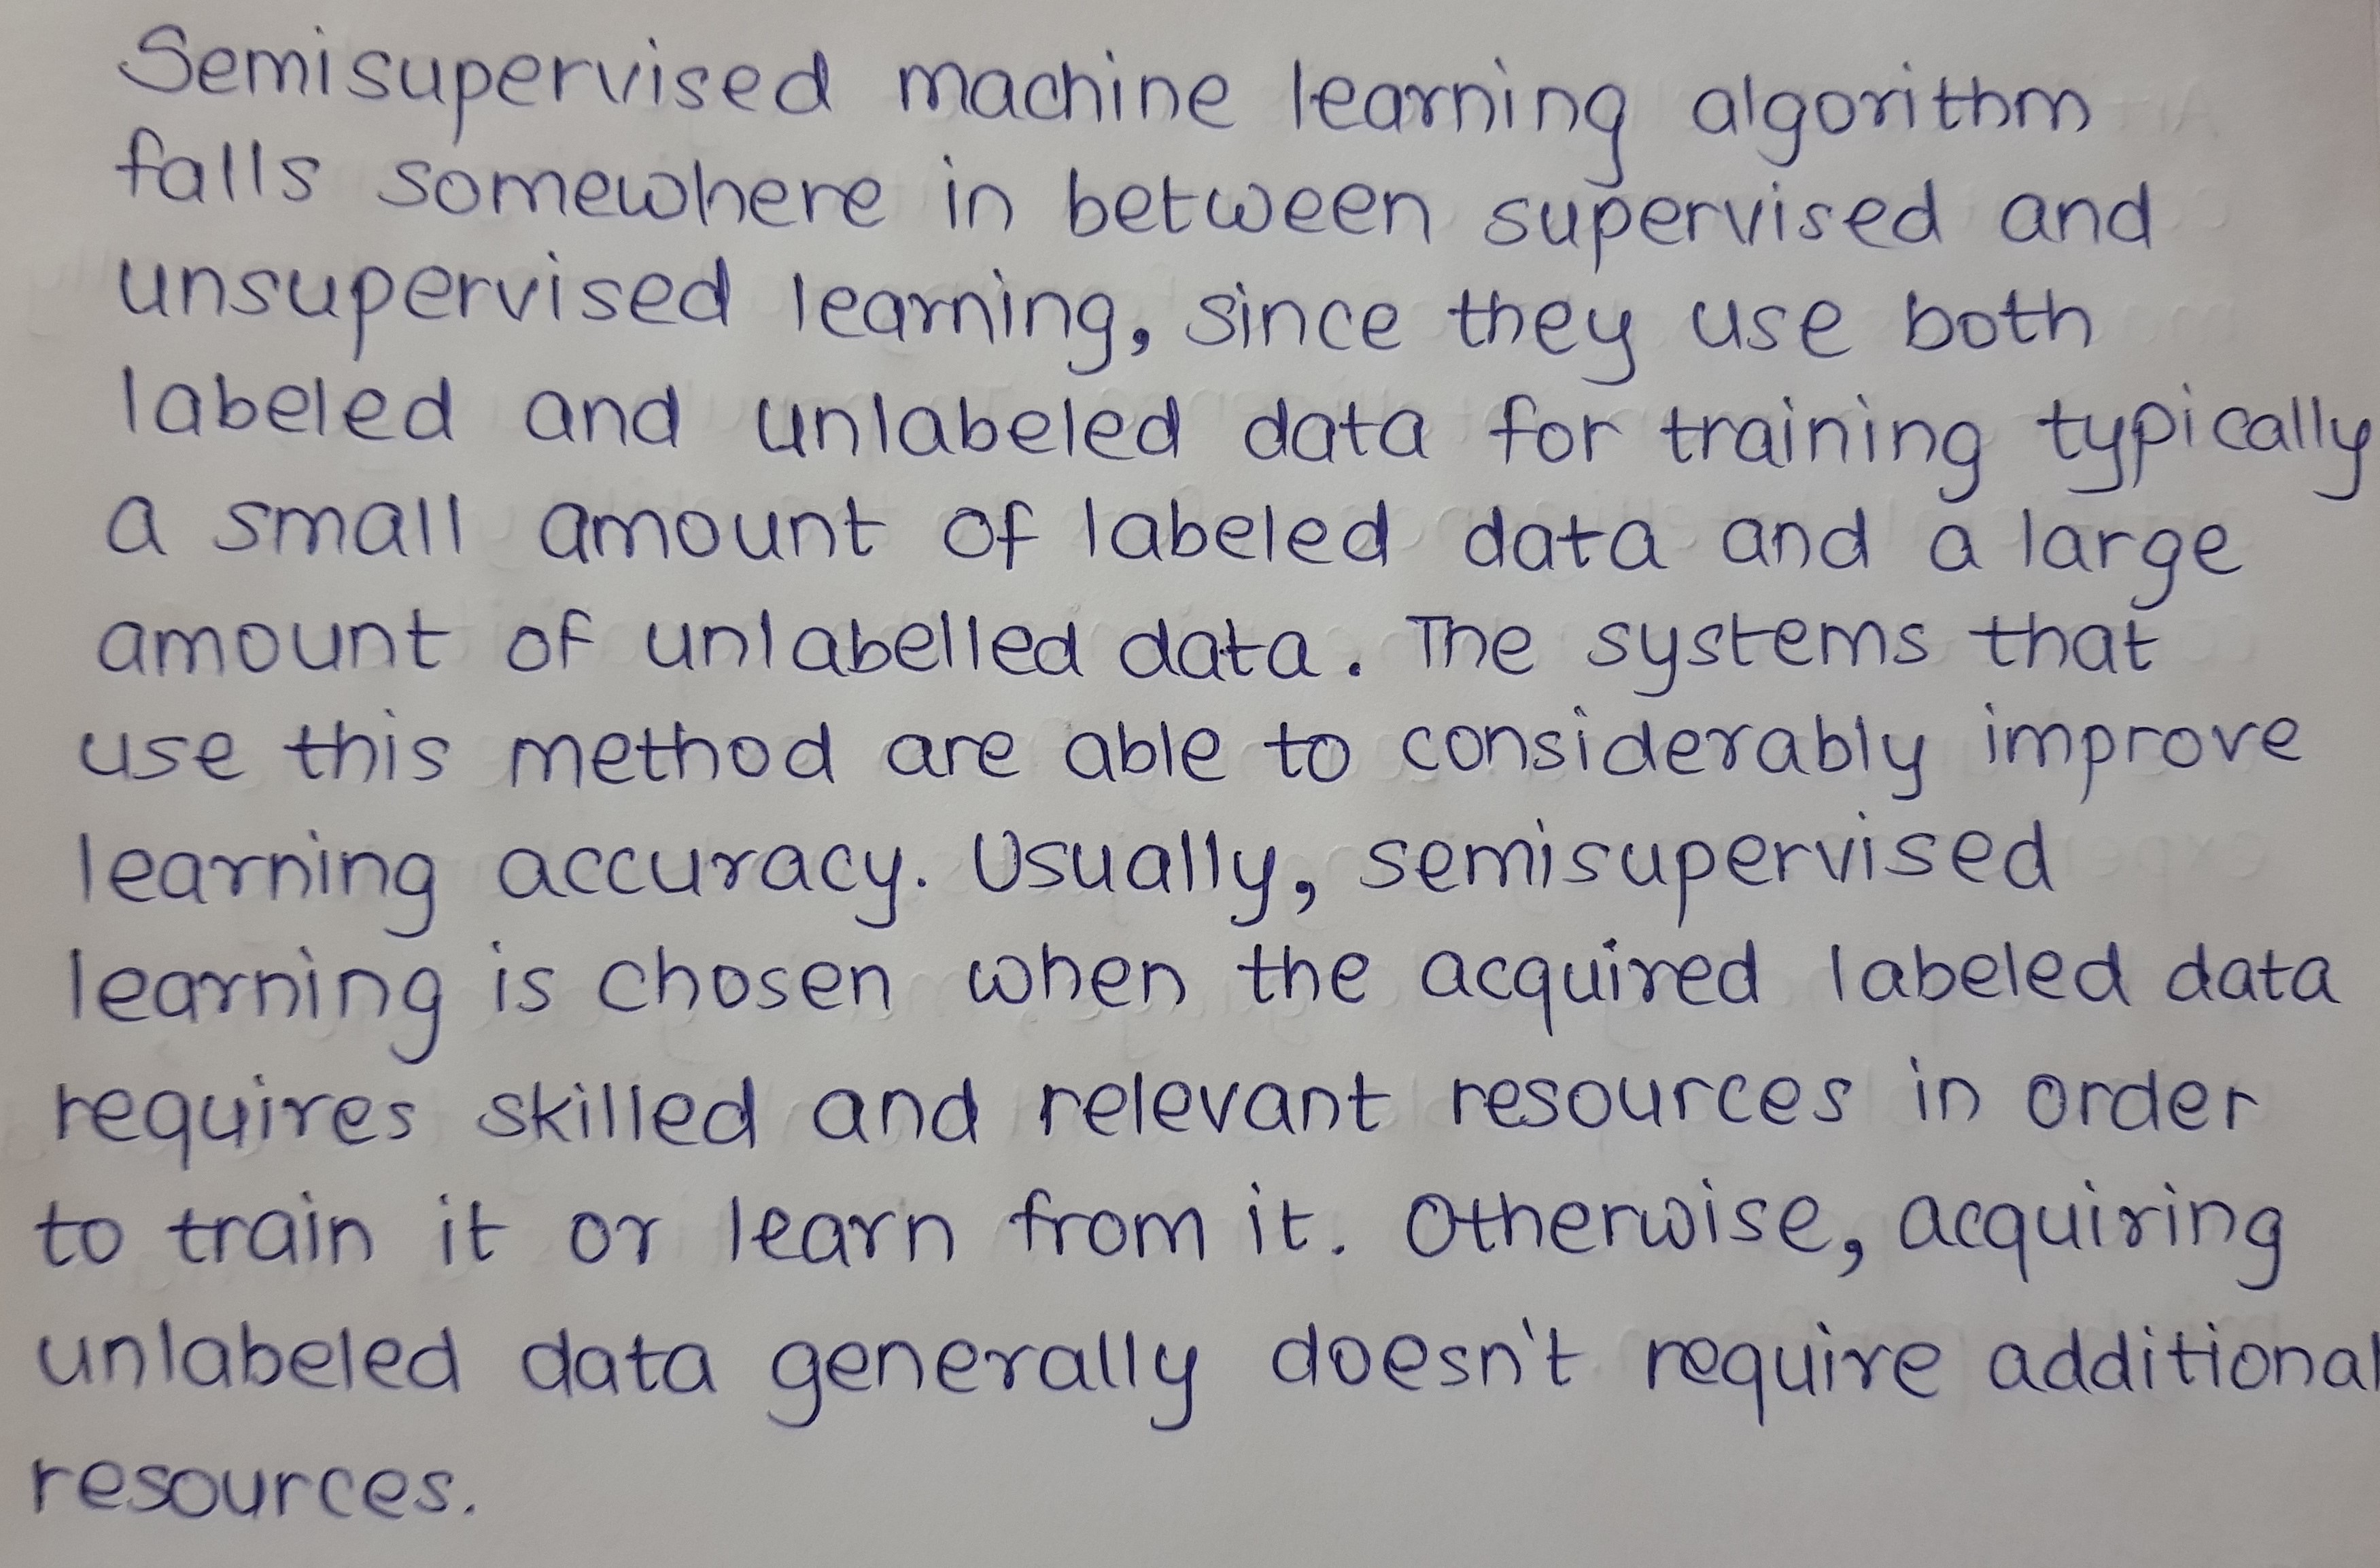 Semisupervised machine learning algorithm
falls somewhere in between supervised and
unsupervised learning, since they use both
labeled and unlabeled data for training typically
a small amount of labeled data and a large
amount of unlabelled data. The systems that
use this method are able to considerably improve
learning accuracy. Usually, semisupervised
learning is chosen when the acquired labeled data
requires skilled and relevant resources in order
to train it or learn from it. Otherwise, acquiring
unlabeled data generally doesn't require additional
resources.